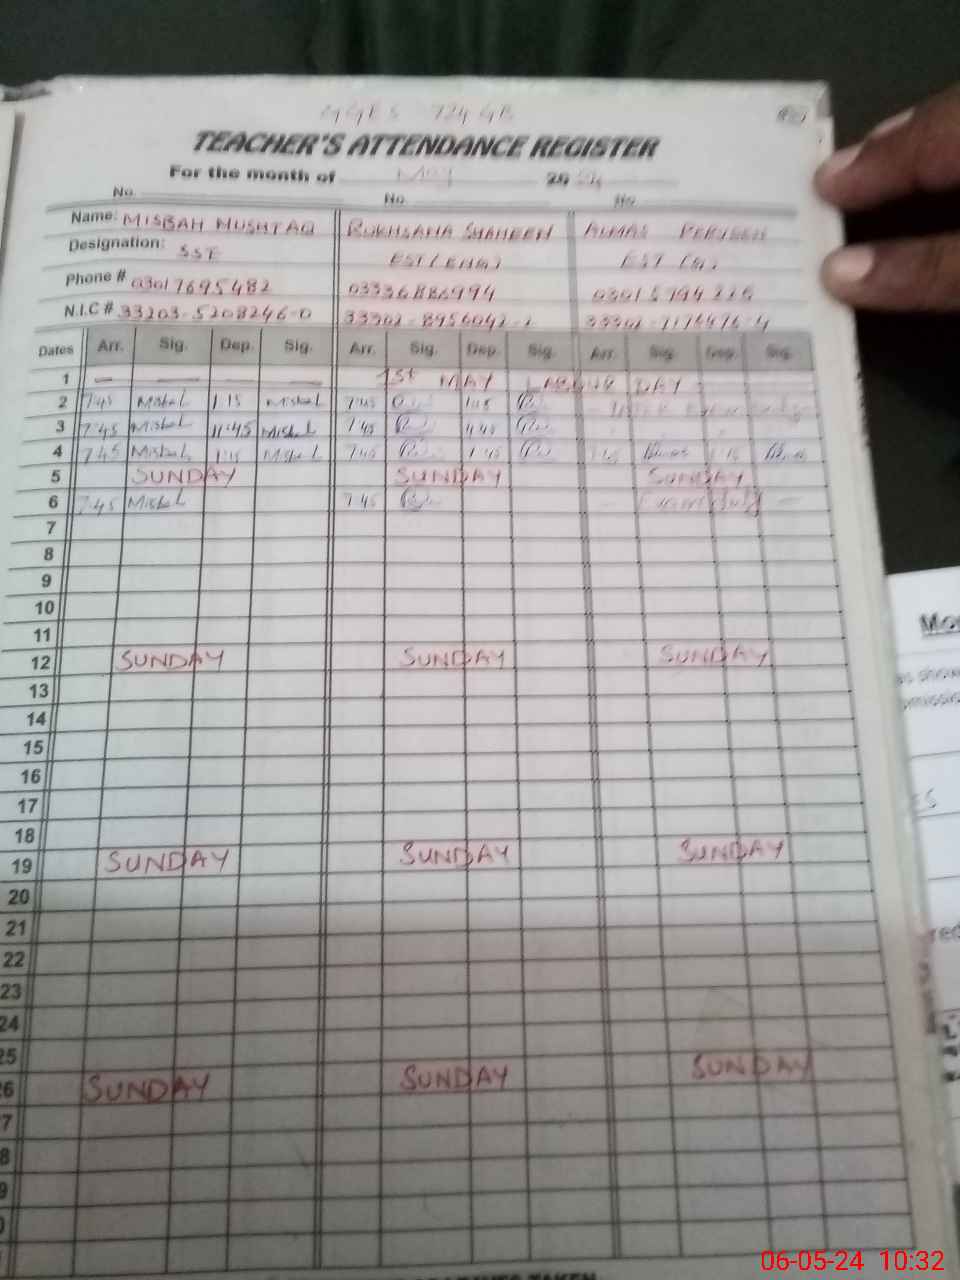 GGES 724 GB
TEACHER'S ATTENDANCE REGISTER
For the month of May 20 24
No. No. No.
Name: MISBAH MUSHTAQ RUKHSANA SHAHEEN ALMAS PERVEEN
Designation: SST EST (Eng) EST (G)
Phone # 03017695482 03336886994 03015794226
N.I.C # 33203-5208246-0 33302-8956042-2 33302-7174476-4
Dates Arr. Sig. Dep. Sig. Arr. Sig. Dep. Sig. Arr. Sig. Dep. Sig.
1 — — — — 1st MAY LABOUR DAY
2 7:45 Misbah 1:15 Misbah 7:45 1:15
3 7:45 Misbah 11:45 Misbah 7:45 11:45
4 7:45 Misbah 1:15 Misbah 7:45 1:15 7:45 Almas 1:15 Almas
5 SUNDAY SUNDAY SUNDAY
6 7:45 Misbah 7:45 — Exam duty —
7
8
9
10
11
12 SUNDAY SUNDAY SUNDAY
13
14
15
16
17
18
19 SUNDAY SUNDAY SUNDAY
20
21
22
23
24
25
26 SUNDAY SUNDAY SUNDAY
7
8
9
06-05-24 10:32